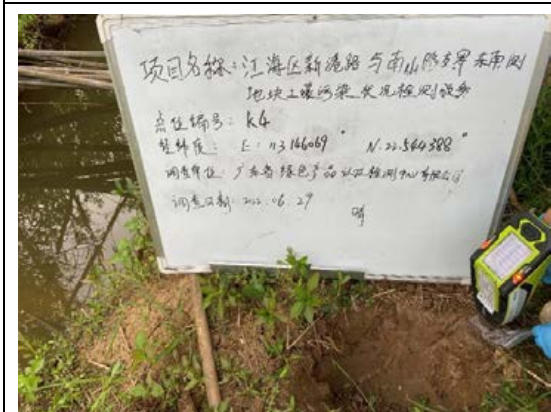 项目名称:江海区新港路与南山路交界东南侧
地块土壤污染状况检测服务
点位编号:K4
经纬度:E:113.146069° N:22.564388°
调查单位:广东省绿色产品认证检测中心有限公司
调查日期:2022.06.29 晴